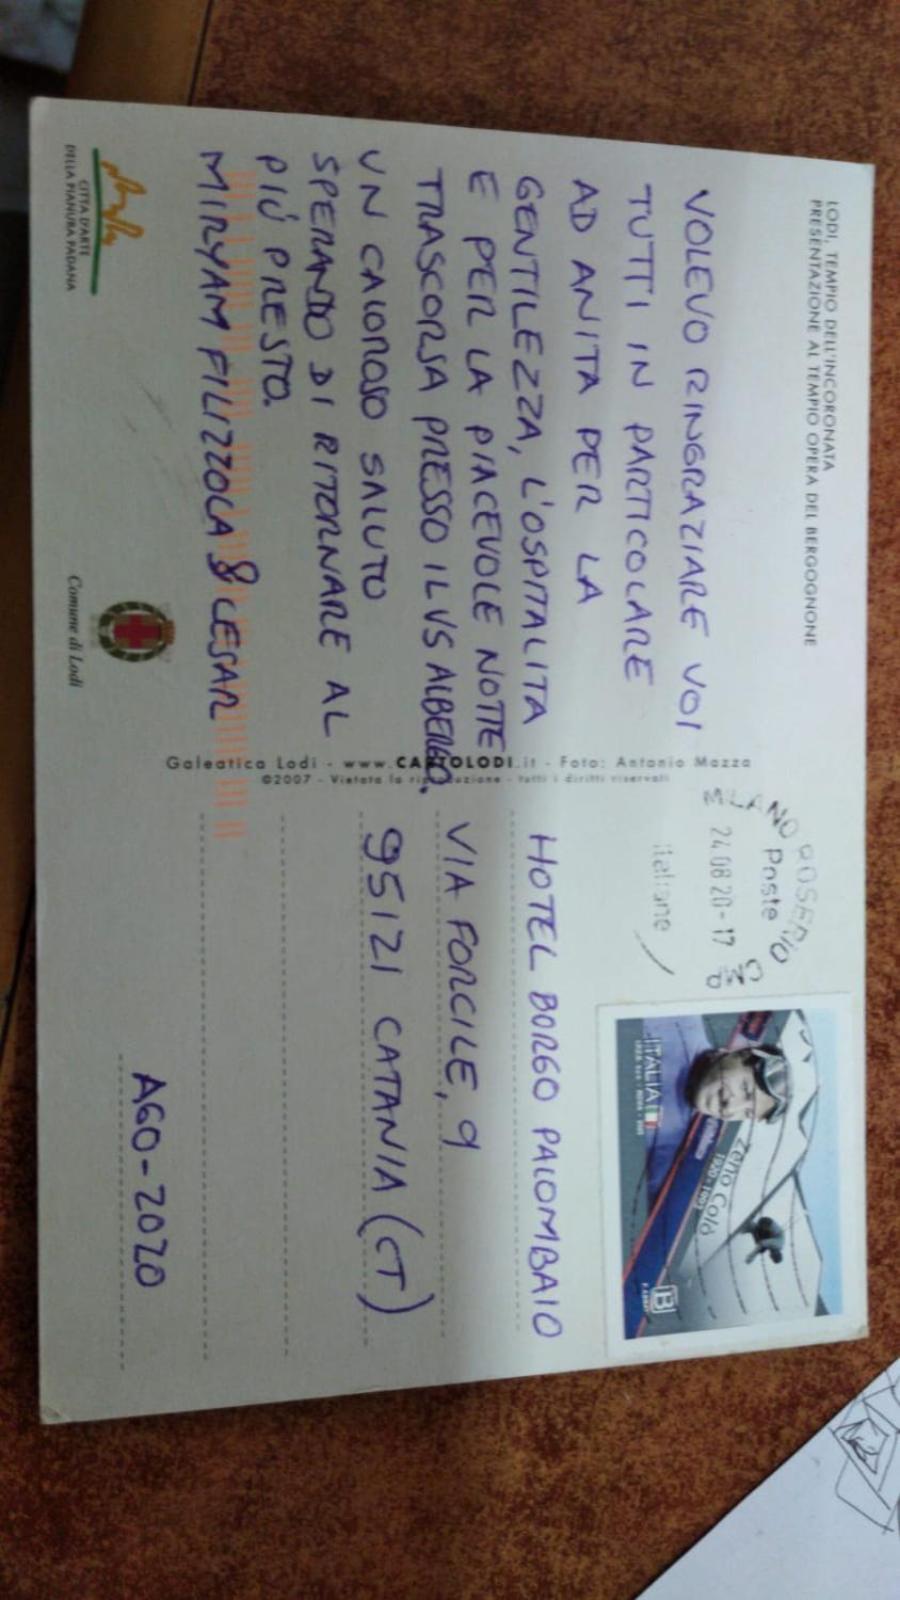 LODI, TEMPIO DELL'INCORONATA
PRESENTAZIONE AL TEMPIO OPERA DEL BERGOGNONE
VOLEVO RINGRAZIARE VOI
TUTTI IN PARTICOLARE
AD ANITA PER LA
GENTILEZZA, L'OSPITALITA
E PER LA PIACEVOLE NOTTE
TRASCORSA PRESSO IL VS ALBERGO.
UN CALOROSO SALUTO
SPERANDO DI RITORNARE AL
PIÙ PRESTO.
MIRYAM FILIZZOLA & CESAR
CITTÀ D'ARTE
DELLA PIANURA PADANA
Comune di Lodi
Galeatica Lodi - www.CARTOLODI.it - Foto: Antonio Mazza
©2007 - Vietata la riproduzione - tutti i diritti riservati
MILANO ROSERIO CMP
Poste
24.08.20-17
italiane
ITALIA B
Zeno Colò
1920-1993
HOTEL BORGO PALOMBAIO
VIA FORCILE, 9
95121 CATANIA (CT)
AGO-2020